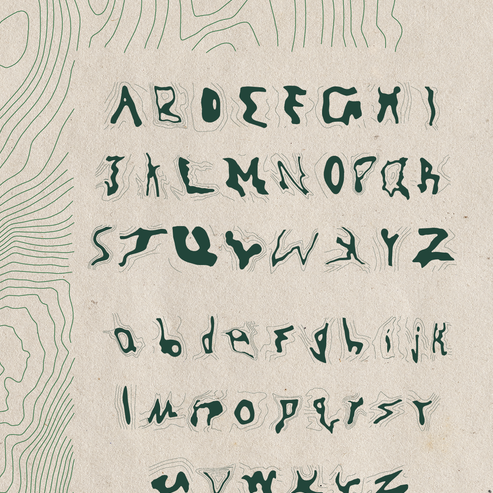 A B D E F G H I
J K L M N O P Q R
S T U V W X Y Z
a b d e f g h i j k
l m n o p q r s t
u v w x y z